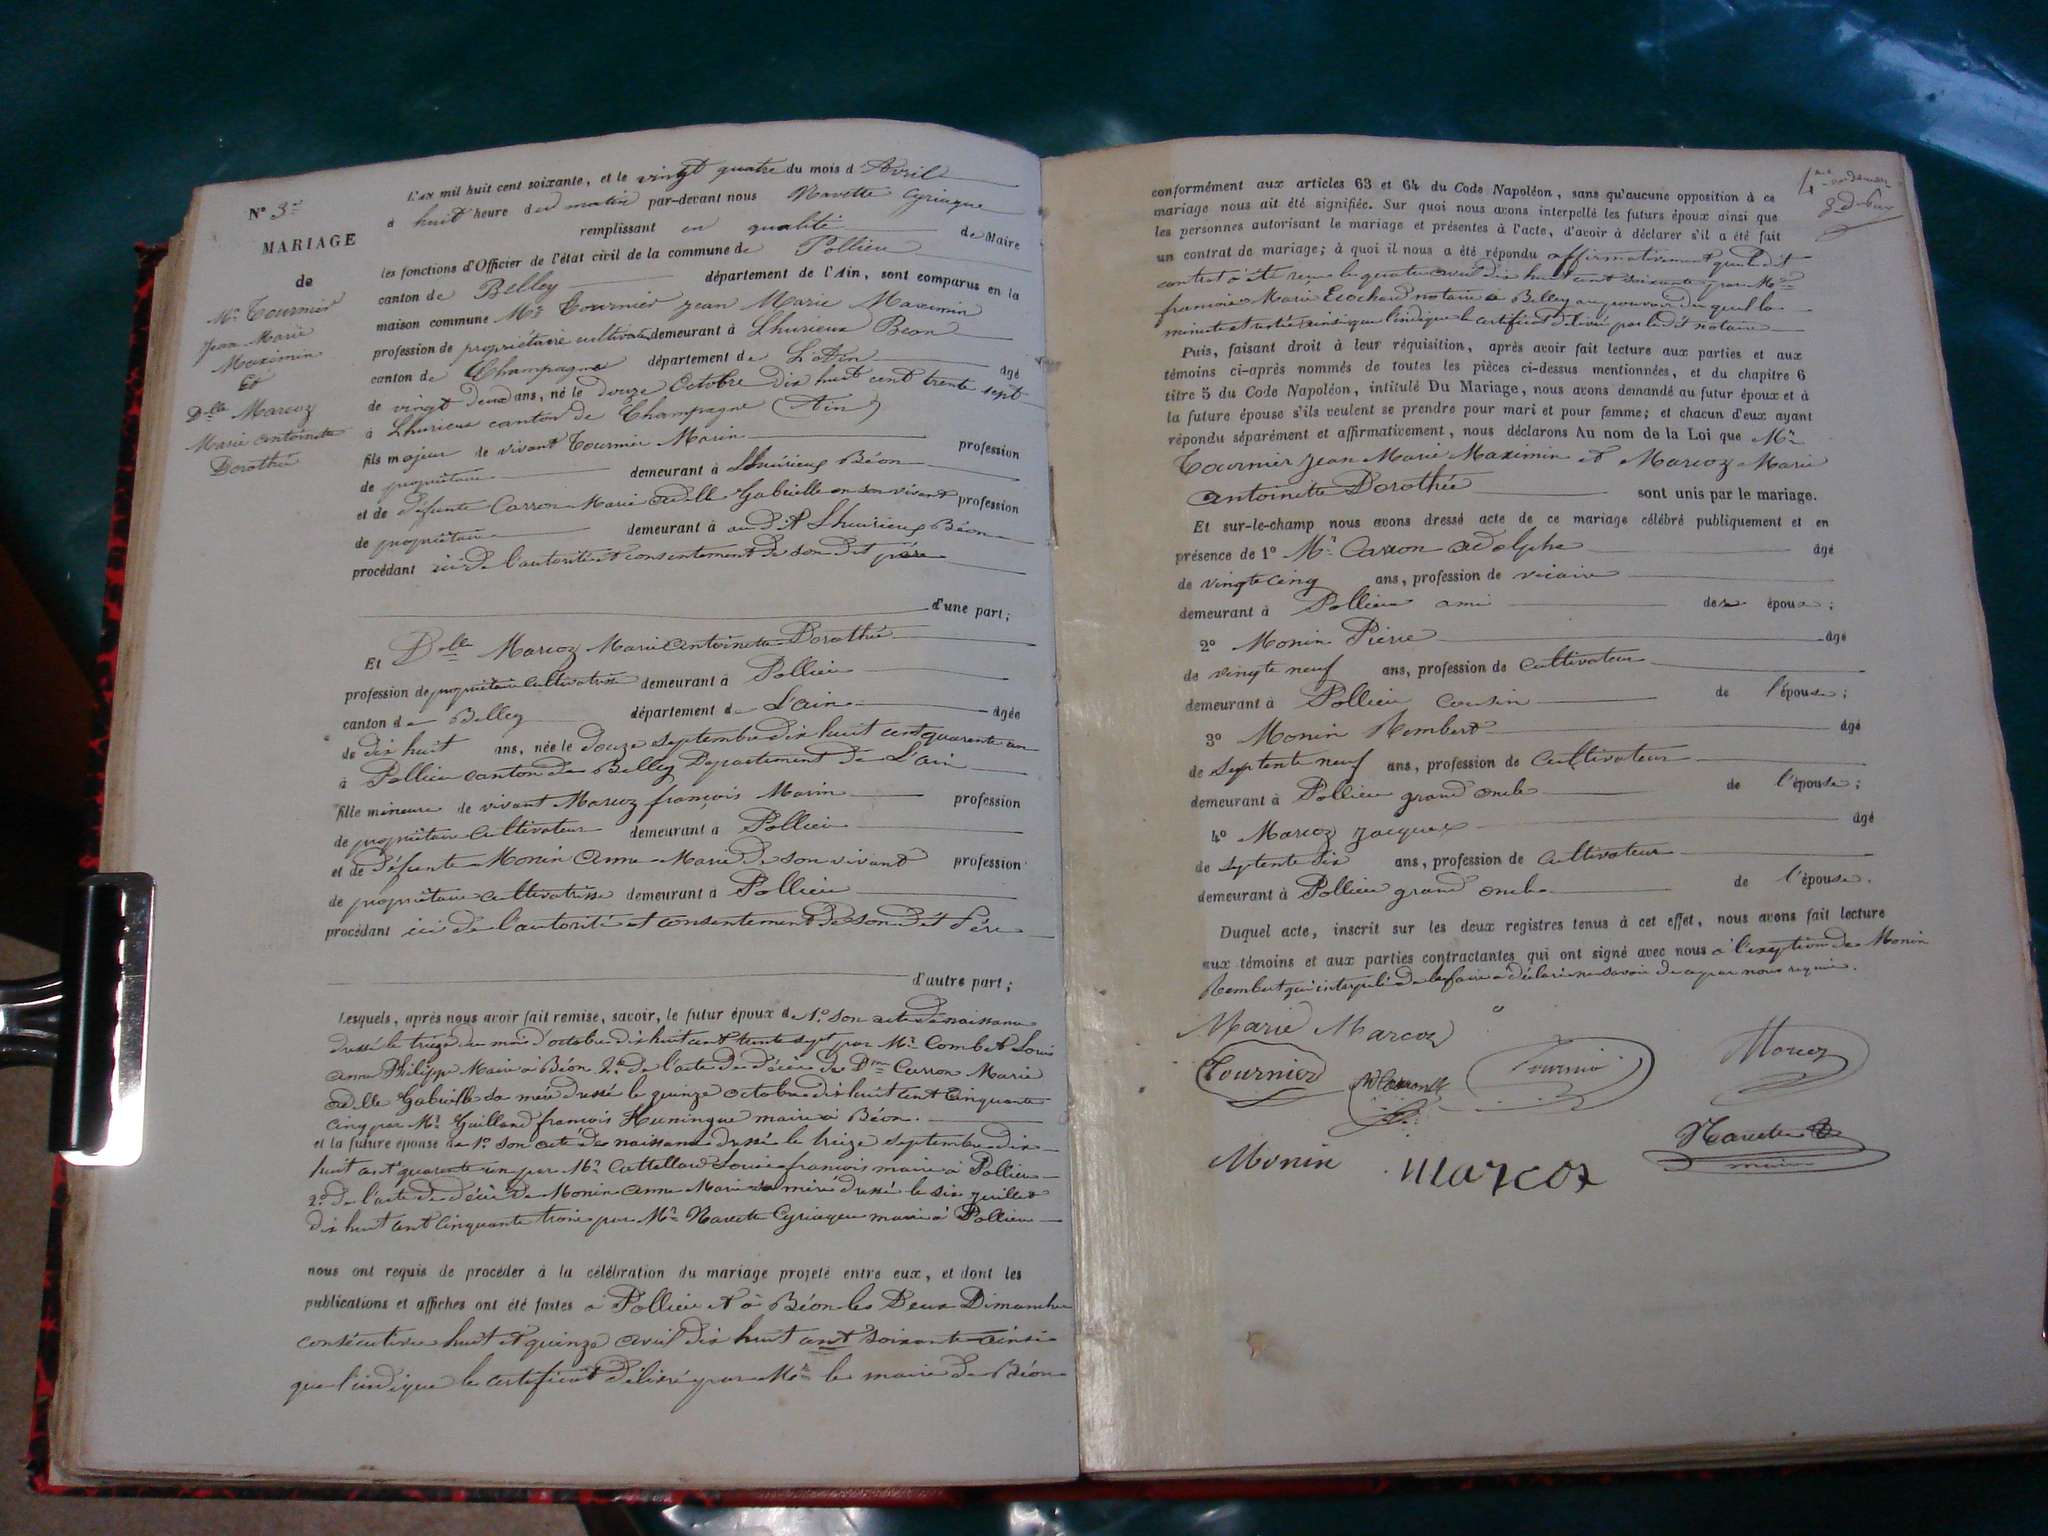 N° 3
MARIAGE
de
Mr Tournier
Jean Marie
Maximin
Et
Dlle Marcoz
Marie antoinette
Dorothée
L'an mil huit cent soixante, et le vingt quatre du mois d'Avril
à huit heure du matin par-devant nous Navette Cyriaque
remplissant en qualité de Maire
les fonctions d'Officier de l'état civil de la commune de Pollieu
canton de Belley département de l'Ain, sont comparus en la
maison commune Mr Tournier Jean Marie Maximin
profession de propriétaire cultivateur demeurant à Lhurieux Béon
canton de Champagne département de L'Ain âgé
de vingt deux ans, né le douze Octobre dix huit cent trente sept
à Lhurieux canton de Champagne (Ain)
fils majeur de vivant Tournier Marin profession
de propriétaire demeurant à Lhurieux Béon
et de défunte Carron Marie adelle Gabrielle en son vivant profession
de propriétaire demeurant à au dit Lhurieux Béon
procédant ici de l'autorité et consentement de son dit père
d'une part;
Et Dlle Marcoz Marie Antoinette Dorothée
profession de propriétaire cultivatrisse demeurant à Pollieu
canton de Belley département de L'ain âgée
de dix huit ans, née le douze septembre dix huit cent quarente un
à Pollieu canton de Belley Département de L'ain
fille mineure de vivant Marcoz françois Marin profession
de propriétaire cultivateur demeurant à Pollieu
et de défunte Monin Anne Marie de son vivant profession
de propriétaire cultivatrisse demeurant à Pollieu
procédant ici de l'autorité et consentement de son dit Père
d'autre part;
Lesquels, après nous avoir fait remise, savoir, le futur époux de 1° son acte de naissance
dressé le treize du mois d'octobre dix huit cent trente sept par Mr Combet Louis
Anne Philippe Maire à Béon 2° de l'acte de décès de Dme Carron Marie
adelle Gabrielle sa mère dressé le quinze octobre dix huit cent cinquante
cinq par Mr Guilland françois Huningue maire à Béon.
et la future épouse de 1° son acte de naissance dressé le treize septembre dix
huit cent quarente un par Mr Cattelland Louis françois maire à Pollieu
2° de l'acte de décès de Monin Anne Marie sa mère dressé le six juillet
dix huit cent cinquante trois par Mr Navette Cyriaque maire à Pollieu
nous ont requis de procéder à la célébration du mariage projeté entre eux, et dont les
publications et affiches ont été faites à Pollieu et à Béon les Deux Dimanches
consécutives huit et quinze avril dix huit cent soixante ainsi
que l'indique le certificat délivré par Mr le maire de Béon
conformément aux articles 63 et 64 du Code Napoléon, sans qu'aucune opposition à ce
mariage nous ait été signifiée. Sur quoi nous avons interpellé les futurs époux ainsi que
les personnes autorisant le mariage et présentes à l'acte, d'avoir à déclarer s'il a été fait
un contrat de mariage; à quoi il nous a été répondu affirmativement que le dit
contrat a été reçu le quatre avril dix huit cent soixante par Me
françois Marie Ecochard notaire à Belley au pouvoir du quel la
minute est restée ainsi que l'indique le certificat délivré par le dit notaire
Puis, faisant droit à leur réquisition, après avoir fait lecture aux parties et aux
témoins ci-après nommés de toutes les pièces ci-dessus mentionnées, et du chapitre 6
titre 5 du Code Napoléon, intitulé Du Mariage, nous avons demandé au futur époux et à
la future épouse s'ils veulent se prendre pour mari et pour femme; et chacun d'eux ayant
répondu séparément et affirmativement, nous déclarons Au nom de la Loi que Mr
Tournier Jean Marie Maximin et Marcoz Marie
antoinette Dorothée sont unis par le mariage.
Et sur-le-champ nous avons dressé acte de ce mariage célébré publiquement et en
présence de 1° Mr Carron Adolphe âgé
de vingte cinq ans, profession de vicaire
demeurant à Pollieu ami des époux;
2° Monin Pierre âgé
de vingte neuf ans, profession de cultivateur
demeurant à Pollieu cousin de l'épouse;
3° Monin Rembert âgé
de septente neuf ans, profession de cultivateur
demeurant à Pollieu grand oncle de l'épouse;
4° Marcoz Jacques âgé
de septente six ans, profession de cultivateur
demeurant à Pollieu grand oncle de l'épouse.
Duquel acte, inscrit sur les deux registres tenus à cet effet, nous avons fait lecture
aux témoins et aux parties contractantes qui ont signé avec nous à l'exeption de Monin
Rembert qui interpelé de le faire a déclaré ne savoir de ce par nous requis.
Marie Marcoz
Tournier
Tournier
Marcoz
Monin
Marcoz
Navette
maire